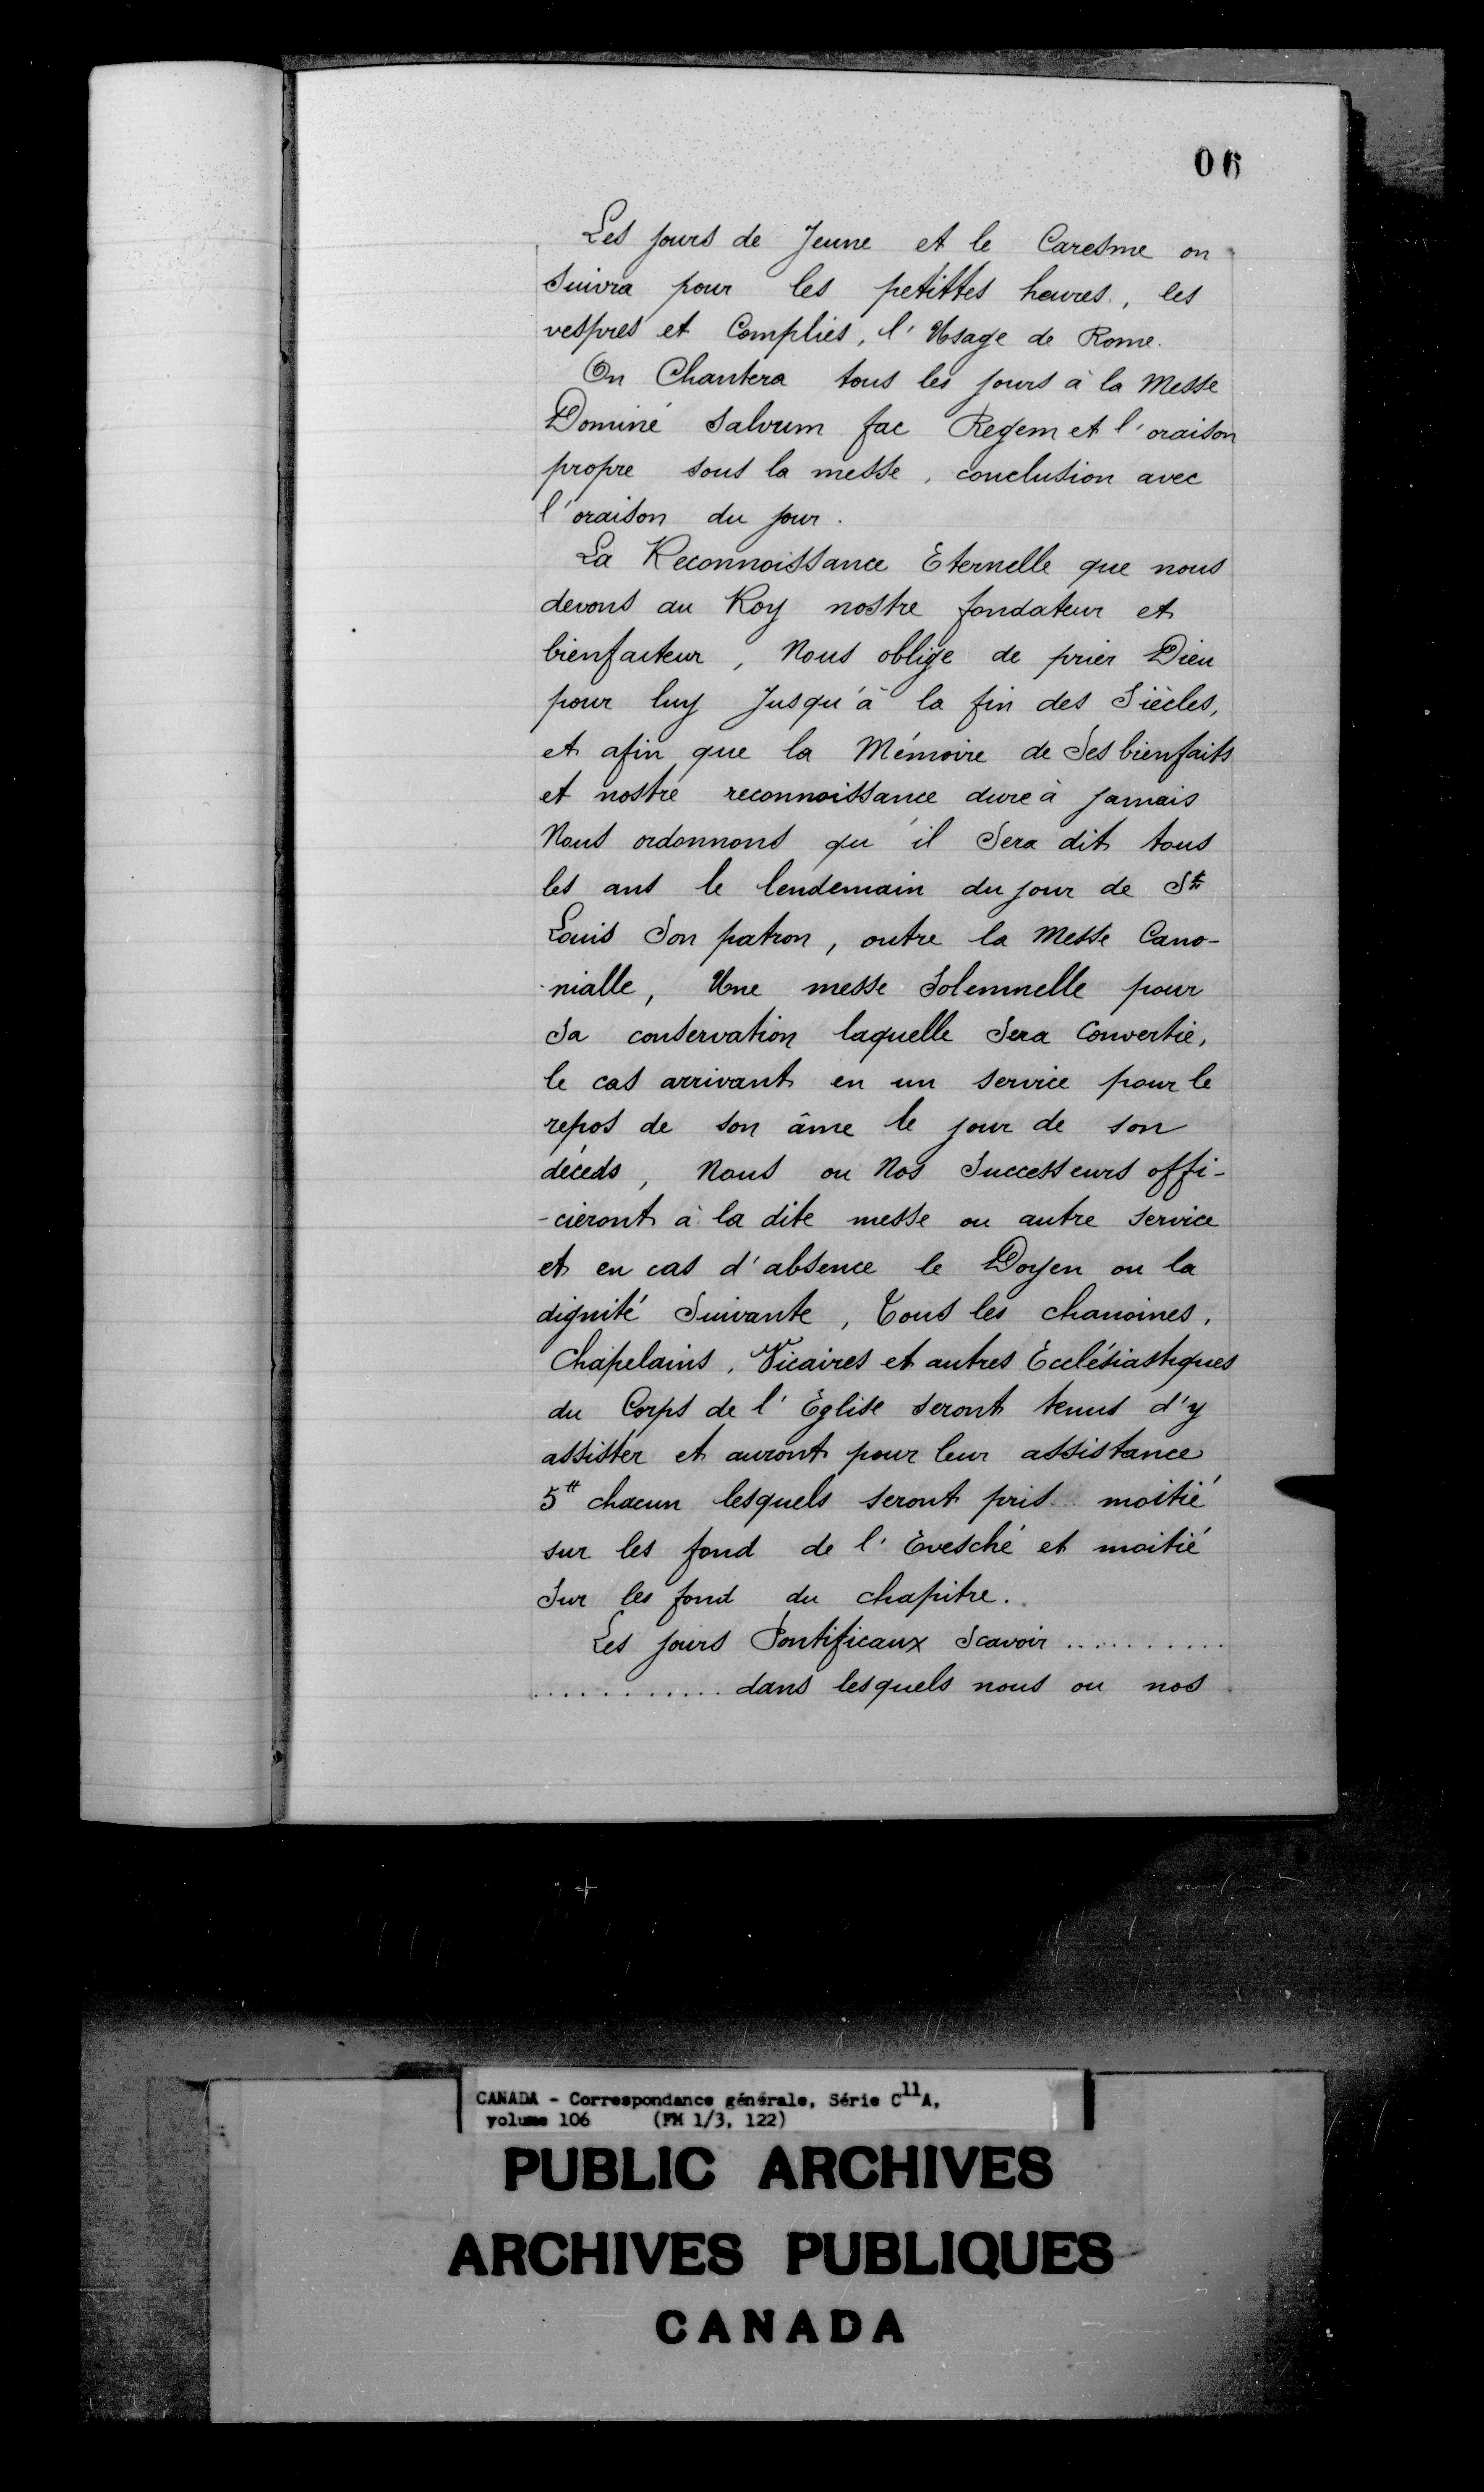 06
Les jours de Jeune et le Caresme on
suivra pour les petittes heures, les
vespres et Complies, l'Usage de Rome.
On Chantera tous les jours à la Messe
Dominé salvum fac Regem et l'oraison
propre sous la messe, conclusion avec
l'oraison du jour.
La Reconnoissance Eternelle que nous
devons au Roy nostre fondateur et
bienfaiteur, Nous oblige de prier Dieu
pour luy Jusqu'à la fin des Siècles,
et afin que la Mémoire de Ses bienfaits
et nostre reconnoissance dure à Jamais
Nous ordonnons qu'il Sera dit tous
les ans le lendemain du jour de St
Louis Son patron, outre la Messe Cano-
-nialle, Une messe Solemnelle pour
Sa conservation laquelle Sera Convertie,
le cas arrivant en un service pour le
repos de son âme le jour de son
déceds, Nous ou Nos Successeurs offi-
-cieront à la dite messe ou autre service
et en cas d'absence le Doyen ou la
dignité Suivante, Tous les chanoines,
Chapelains, Vicaires et autres Ecclésiastiques
du Corps de l'Eglise seront tenus d'y
assister et auront pour leur assistance
5tt chacun lesquels seront pris moitié
sur les fond de l'Evesché et moitié
Sur les fond du chapitre.
Les jours Pontificaux Scavoir ...........
............ dans lesquels nous ou nos
CANADA - Correspondance générale, Série C11A,
volume 106 (FM 1/3, 122)
PUBLIC ARCHIVES
ARCHIVES PUBLIQUES
CANADA